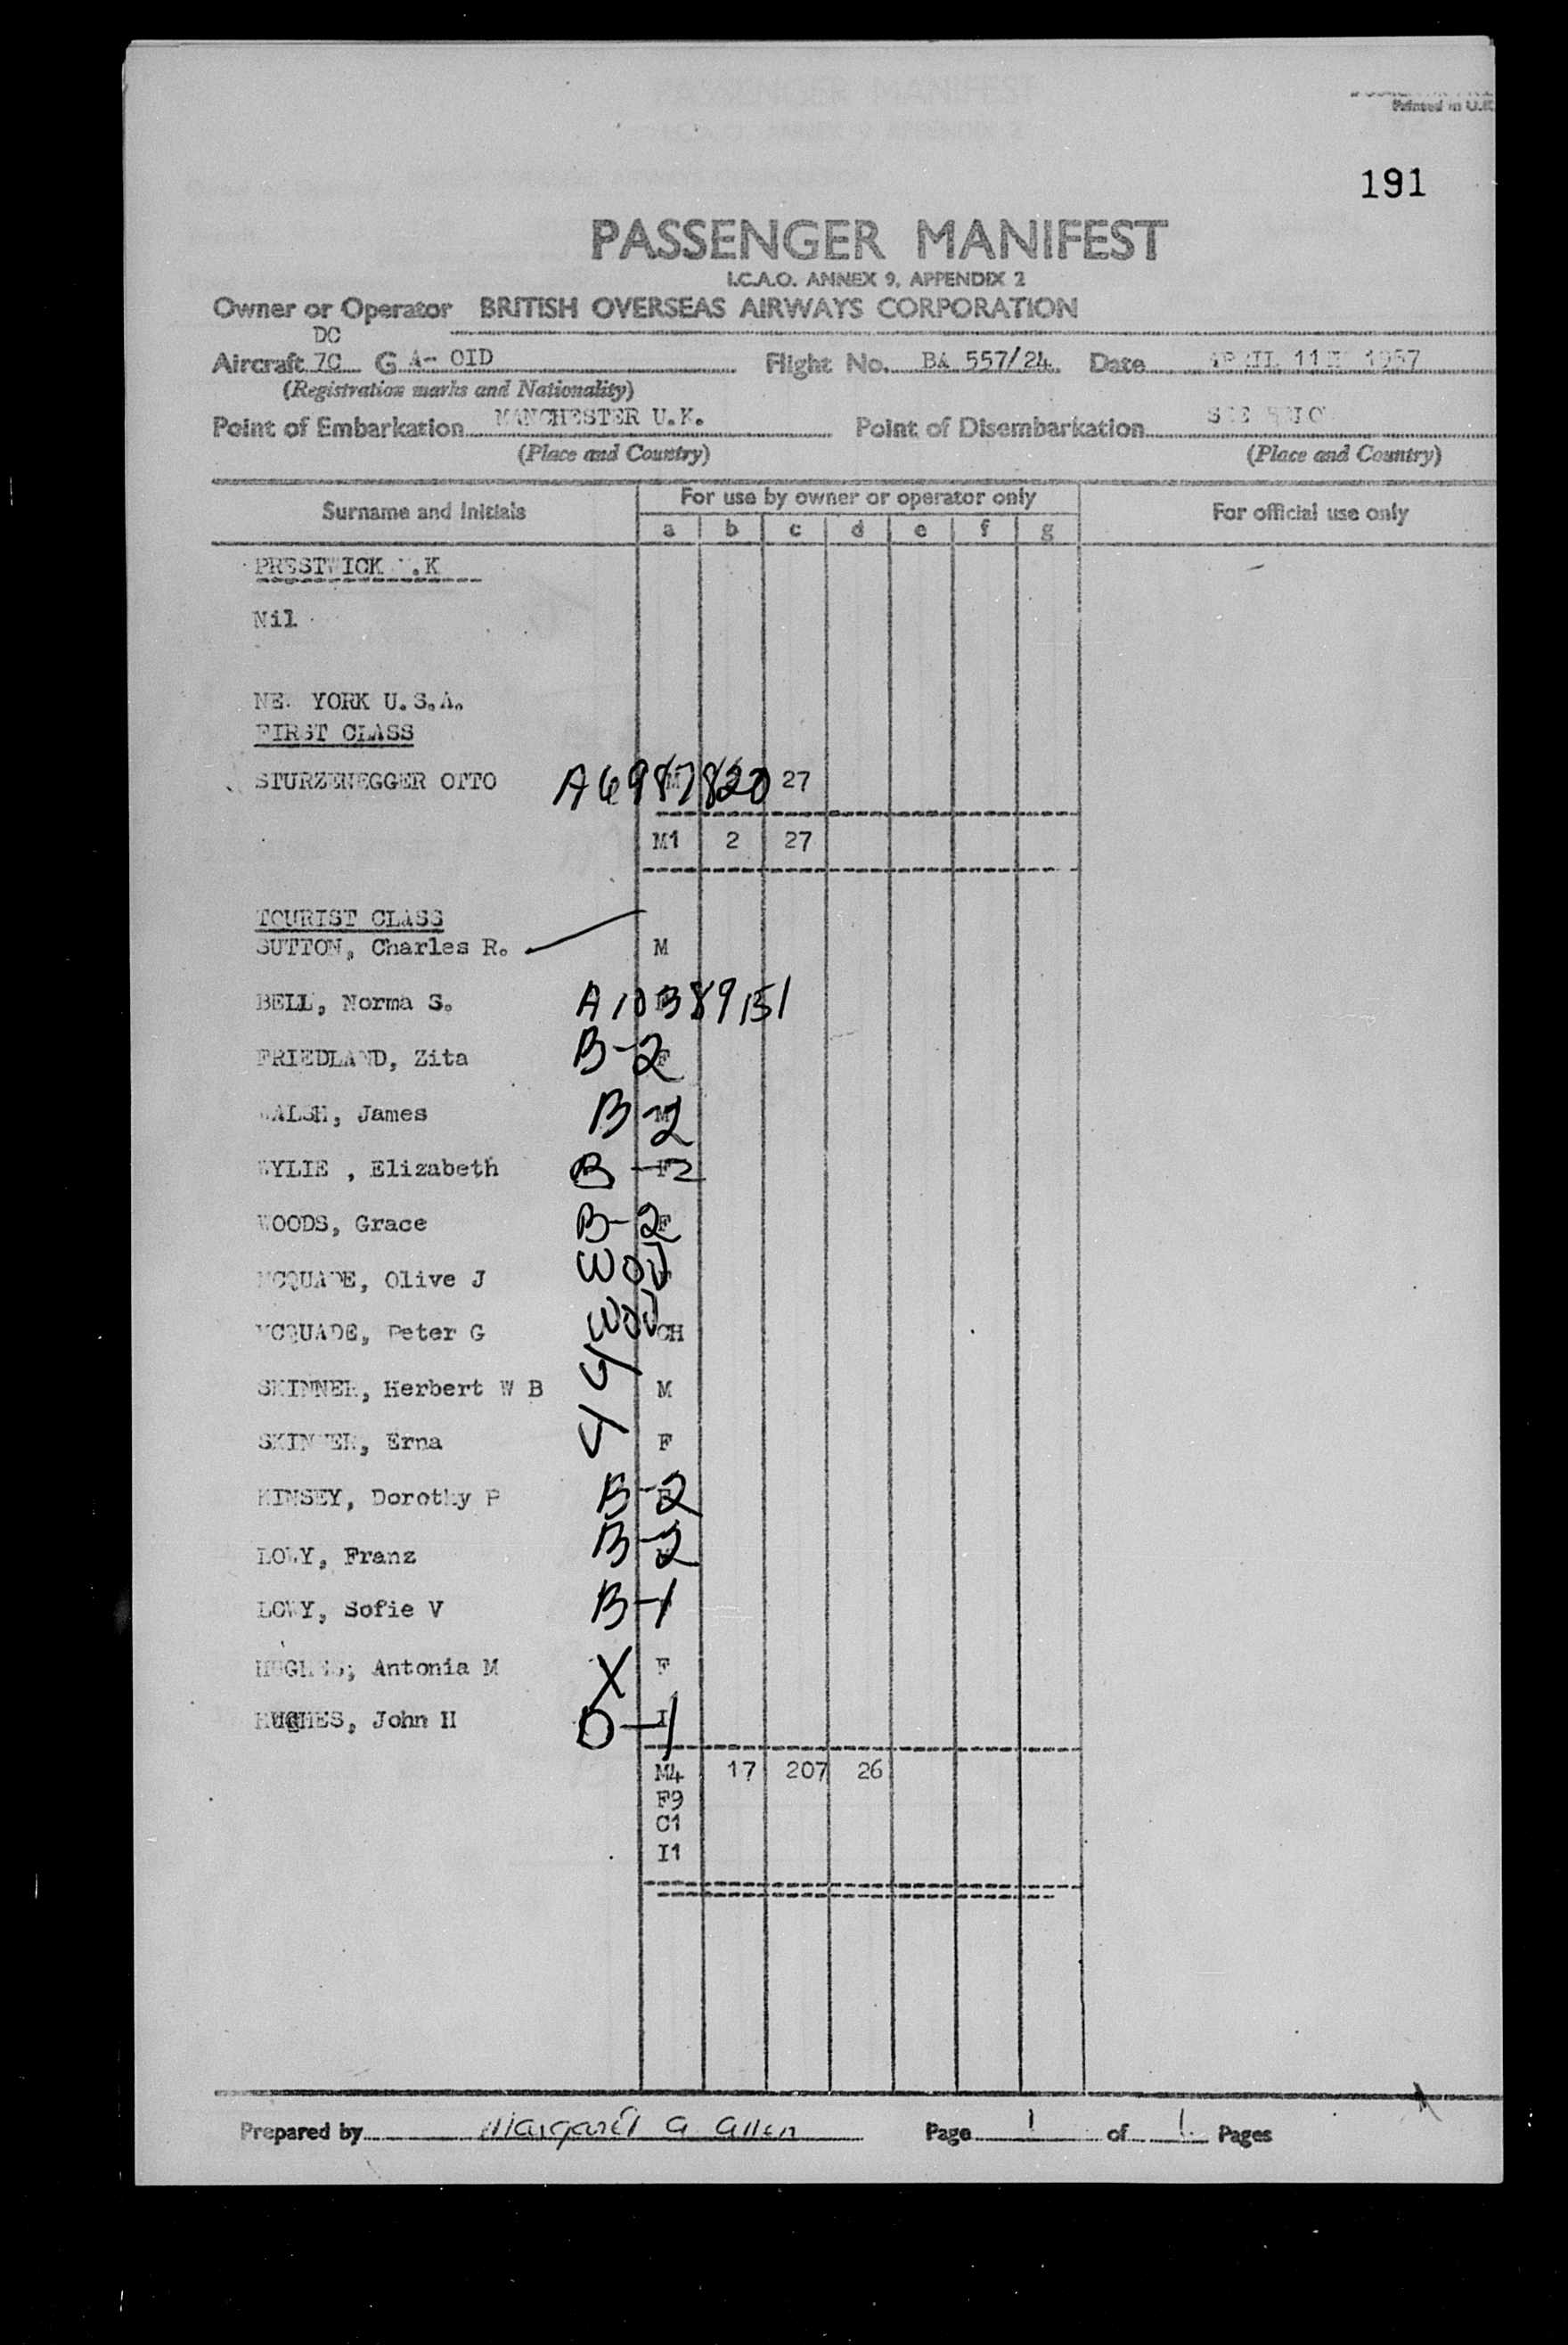 Printed in U.K.
191
PASSENGER MANIFEST
I.C.A.O. ANNEX 9, APPENDIX 2
Owner or Operator BRITISH OVERSEAS AIRWAYS CORPORATION
DC
Aircraft 7C G A- OID Flight No. BA 557/24 Date APRIL 11TH 1957
(Registration marks and Nationality)
Point of Embarkation MANCHESTER U.K. Point of Disembarkation SEE BELOW
(Place and Country) (Place and Country)
Surname and Initials For use by owner or operator only For official use only
a b c d e f g
PRESTWICK U.K
Nil
NEW YORK U.S.A.
FIRST CLASS
STURZENEGGER OTTO A6987820 M 27
M1 2 27
TOURIST CLASS
SUTTON, Charles R. M
BELL, Norma S. A10389151
FRIEDLAND, Zita B-2 F
WALSH, James B-2 M
WYLIE , Elizabeth B-2 F
WOODS, Grace B-2 F
MCQUADE, Olive J WOV
MCQUADE, Peter G WOV CH
SKINNER, Herbert W B 4 M
SKINNER, Erna 4 F
KINSEY, Dorothy P B-2
LOWY, Franz B-2
LOWY, Sofie V B-1
HUGHES, Antonia M X F
HUGHES, John H O-1 I
M4 17 207 26
F9
C1
I1
Prepared by Margaret A Allen Page 1 of 1 Pages